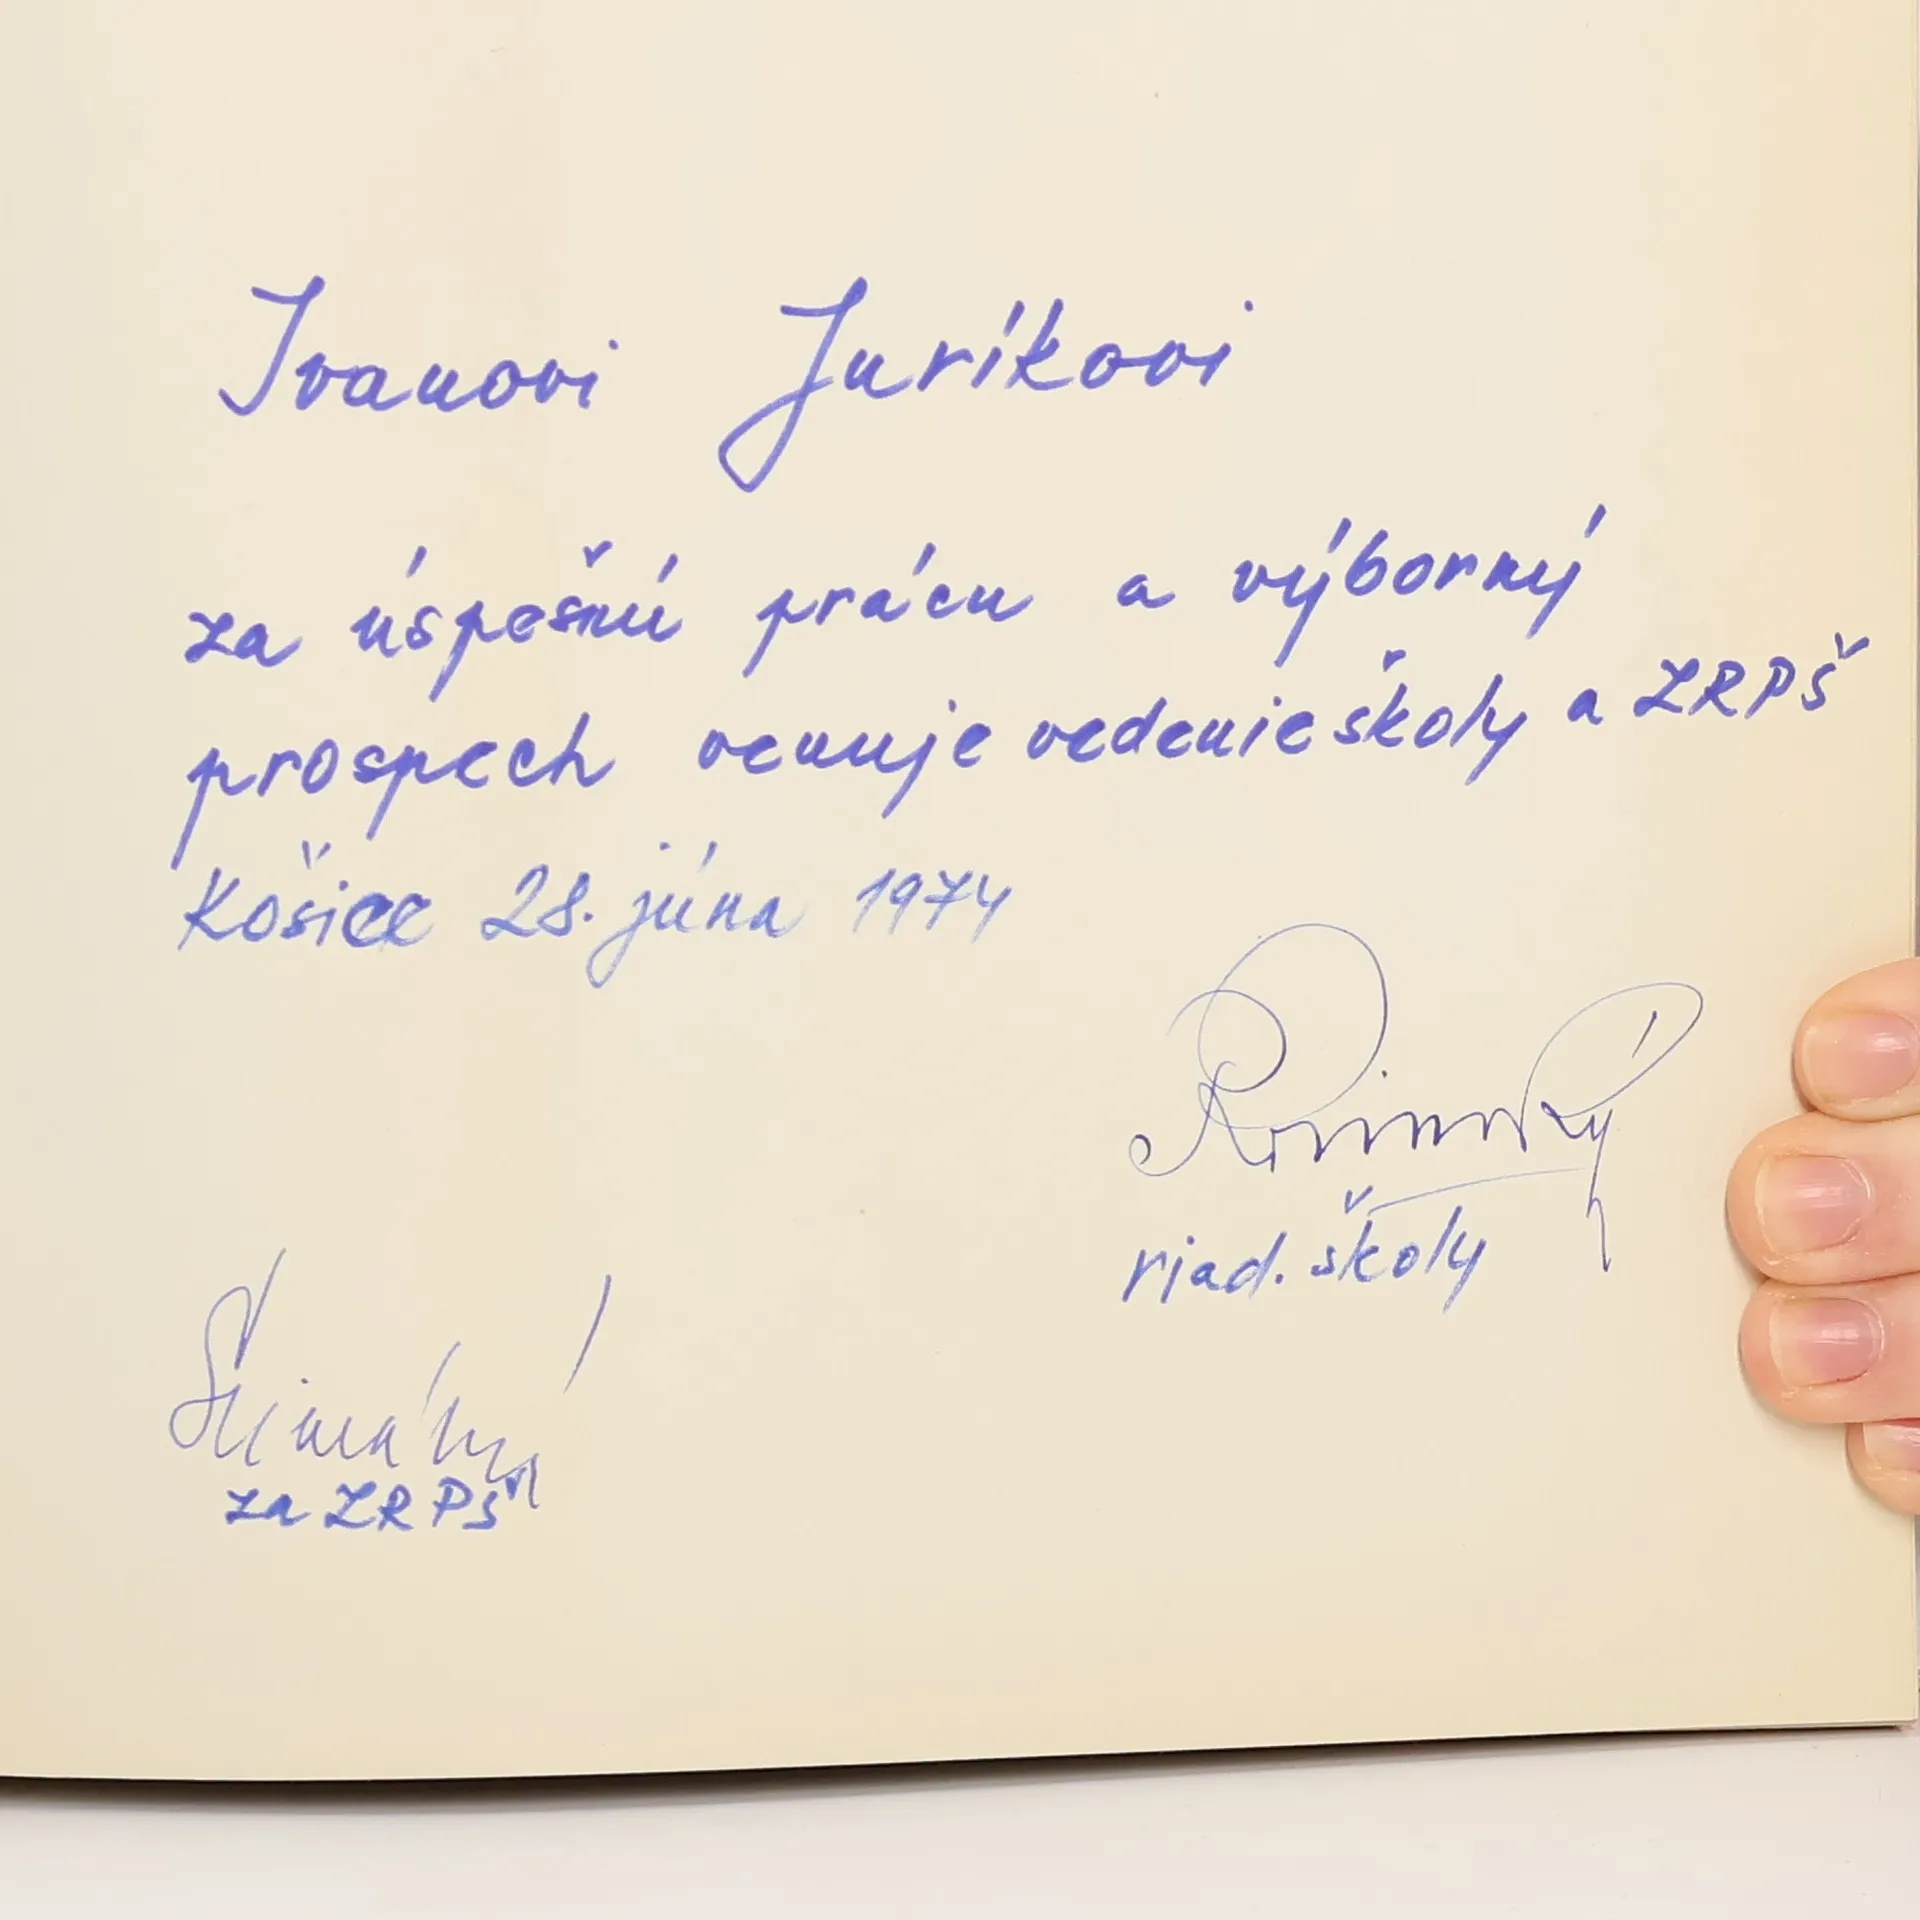 Ivanovi Juríkovi
za úspešnú prácu a výborný
prospech venuje vedenie školy a ZRPŠ
Košice 28. júna 1974
riad. školy
za ZRPŠ